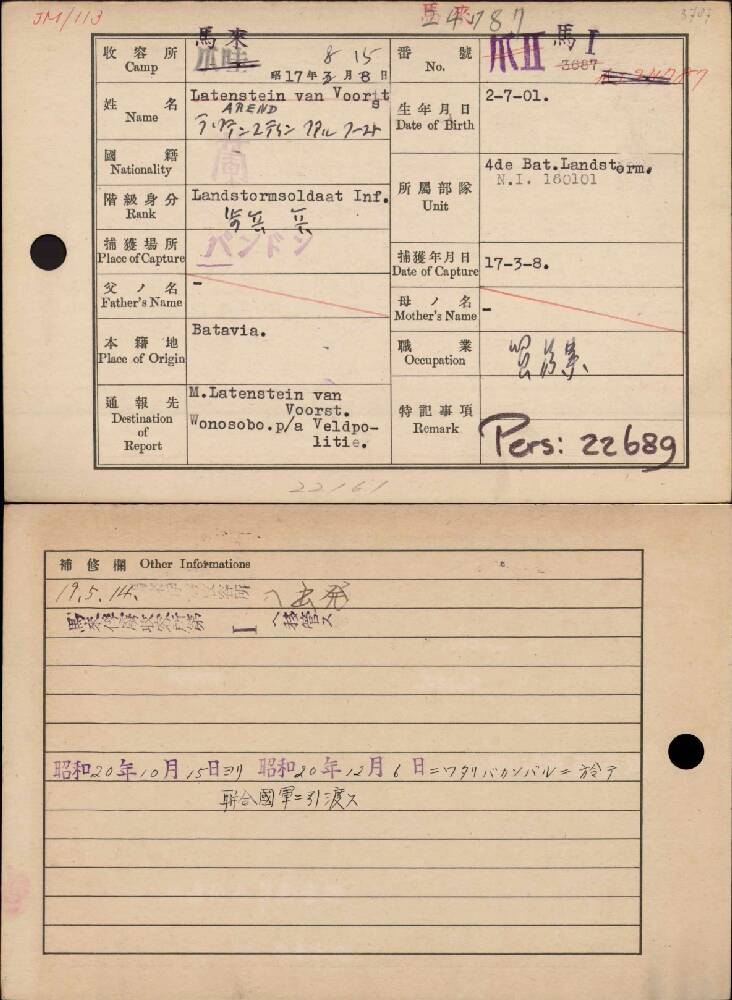 JM/113
馬来
24787
3787
馬来
爪哇
収容所 Camp
8 15
昭17年3月8日
番號 No.
爪II
馬I
3687
姓名 Name
Latenstein van Voorst
AREND
生年月日 Date of Birth
2-7-01.
國籍 Nationality
蘭
階級身分 Rank
Landstormsoldaat Inf.
所屬部隊 Unit
4de Bat.Landstorm.
N.I. 160101
捕獲場所 Place of Capture
バンドン
捕獲年月日 Date of Capture
17-3-8.
父ノ名 Father's Name
-
母ノ名 Mother's Name
-
本籍地 Place of Origin
Batavia.
職業 Occupation
通報先 Destination of Report
M.Latenstein van
Voorst.
Wonosobo.p/a Veldpo-
litie.
特記事項 Remark
Pers: 22689
22161
補修欄 Other Informations
19.5.14.
へ出発
馬来俘虜収容所第 I へ移管ス
昭和20年10月15日ヨリ 昭和20年12月6日ニワタリバカンバルニ於テ
聯合國軍ニ引渡ス